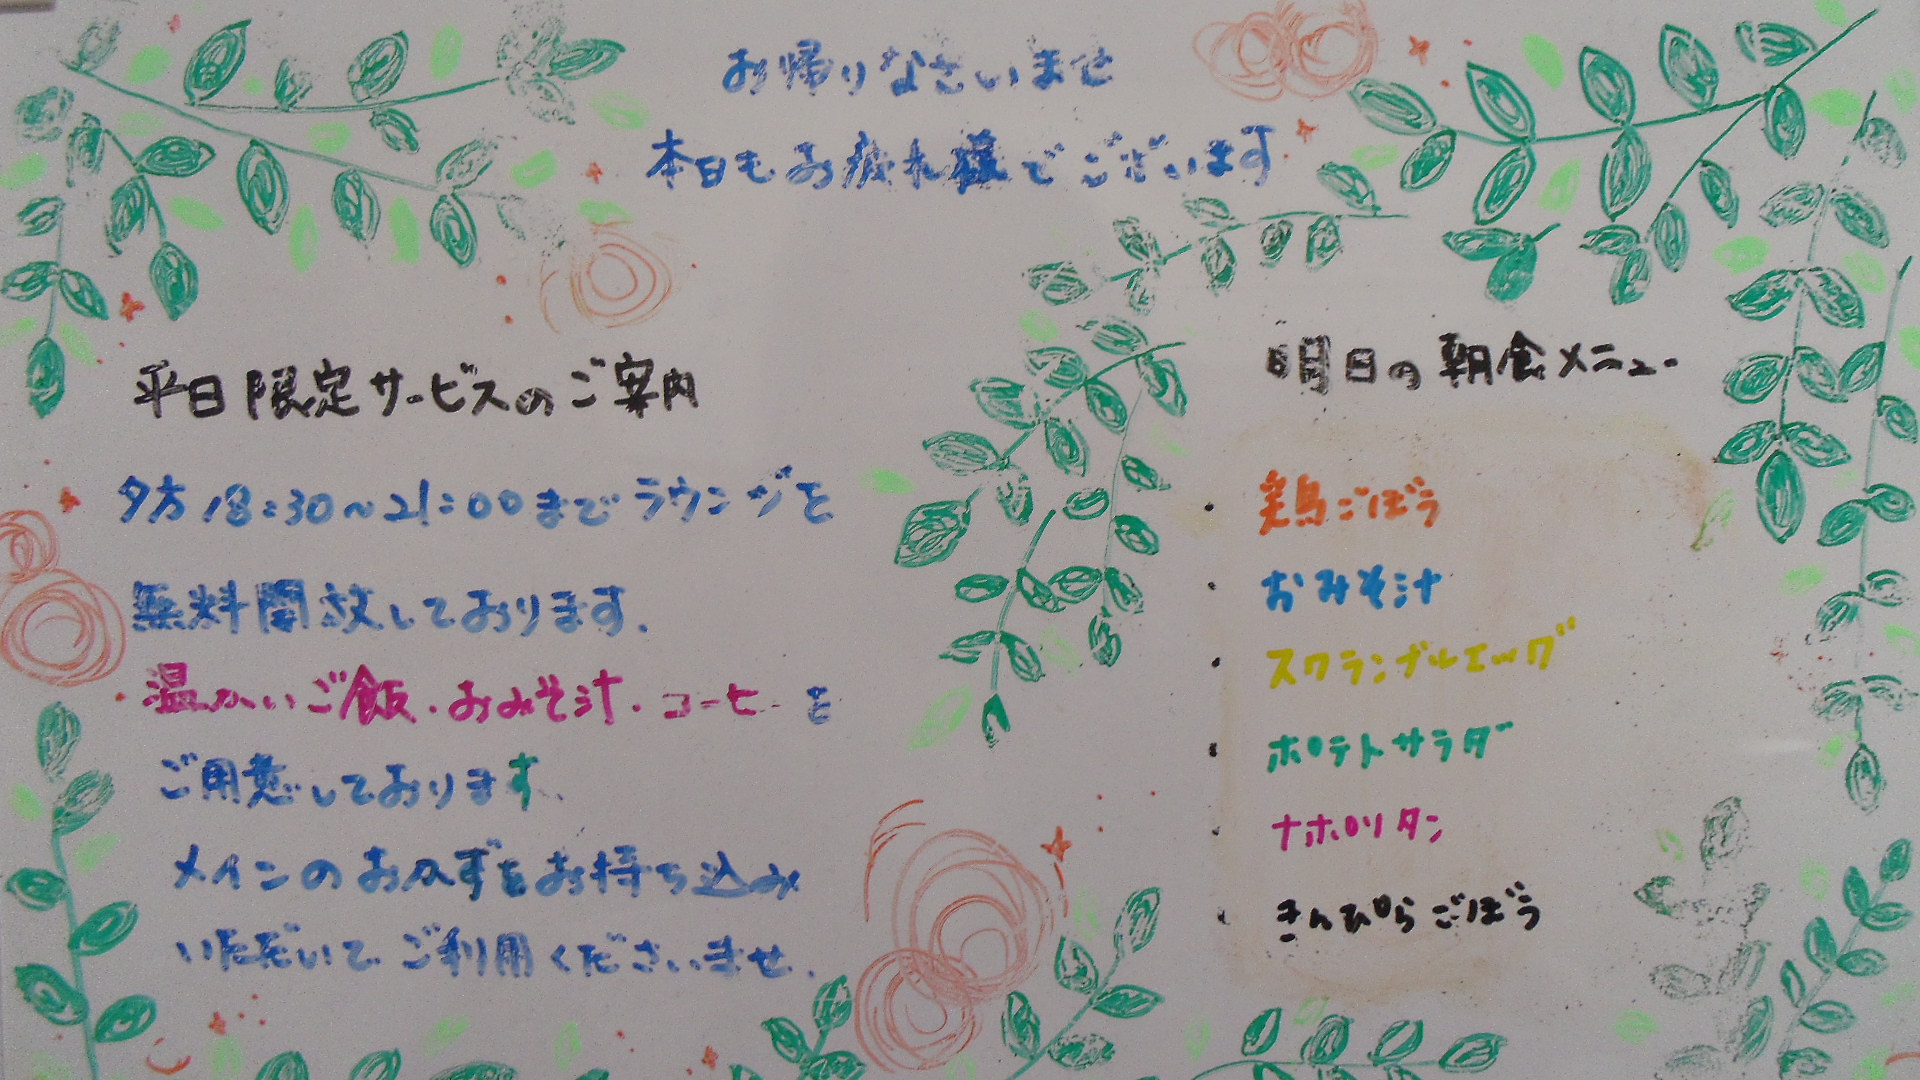 お帰りなさいませ
本日もお疲れ様でございます
平日限定サービスのご案内
夕方18:30~21:00までラウンジを
無料開放しております。
温かいご飯・おみそ汁・コーヒーを
ご用意しております。
メインのおかずをお持ち込み
いただいてご利用くださいませ。
明日の朝食メニュー
・鶏ごぼう
・おみそ汁
・スクランブルエッグ
・ポテトサラダ
・ナポリタン
・きんぴらごぼう